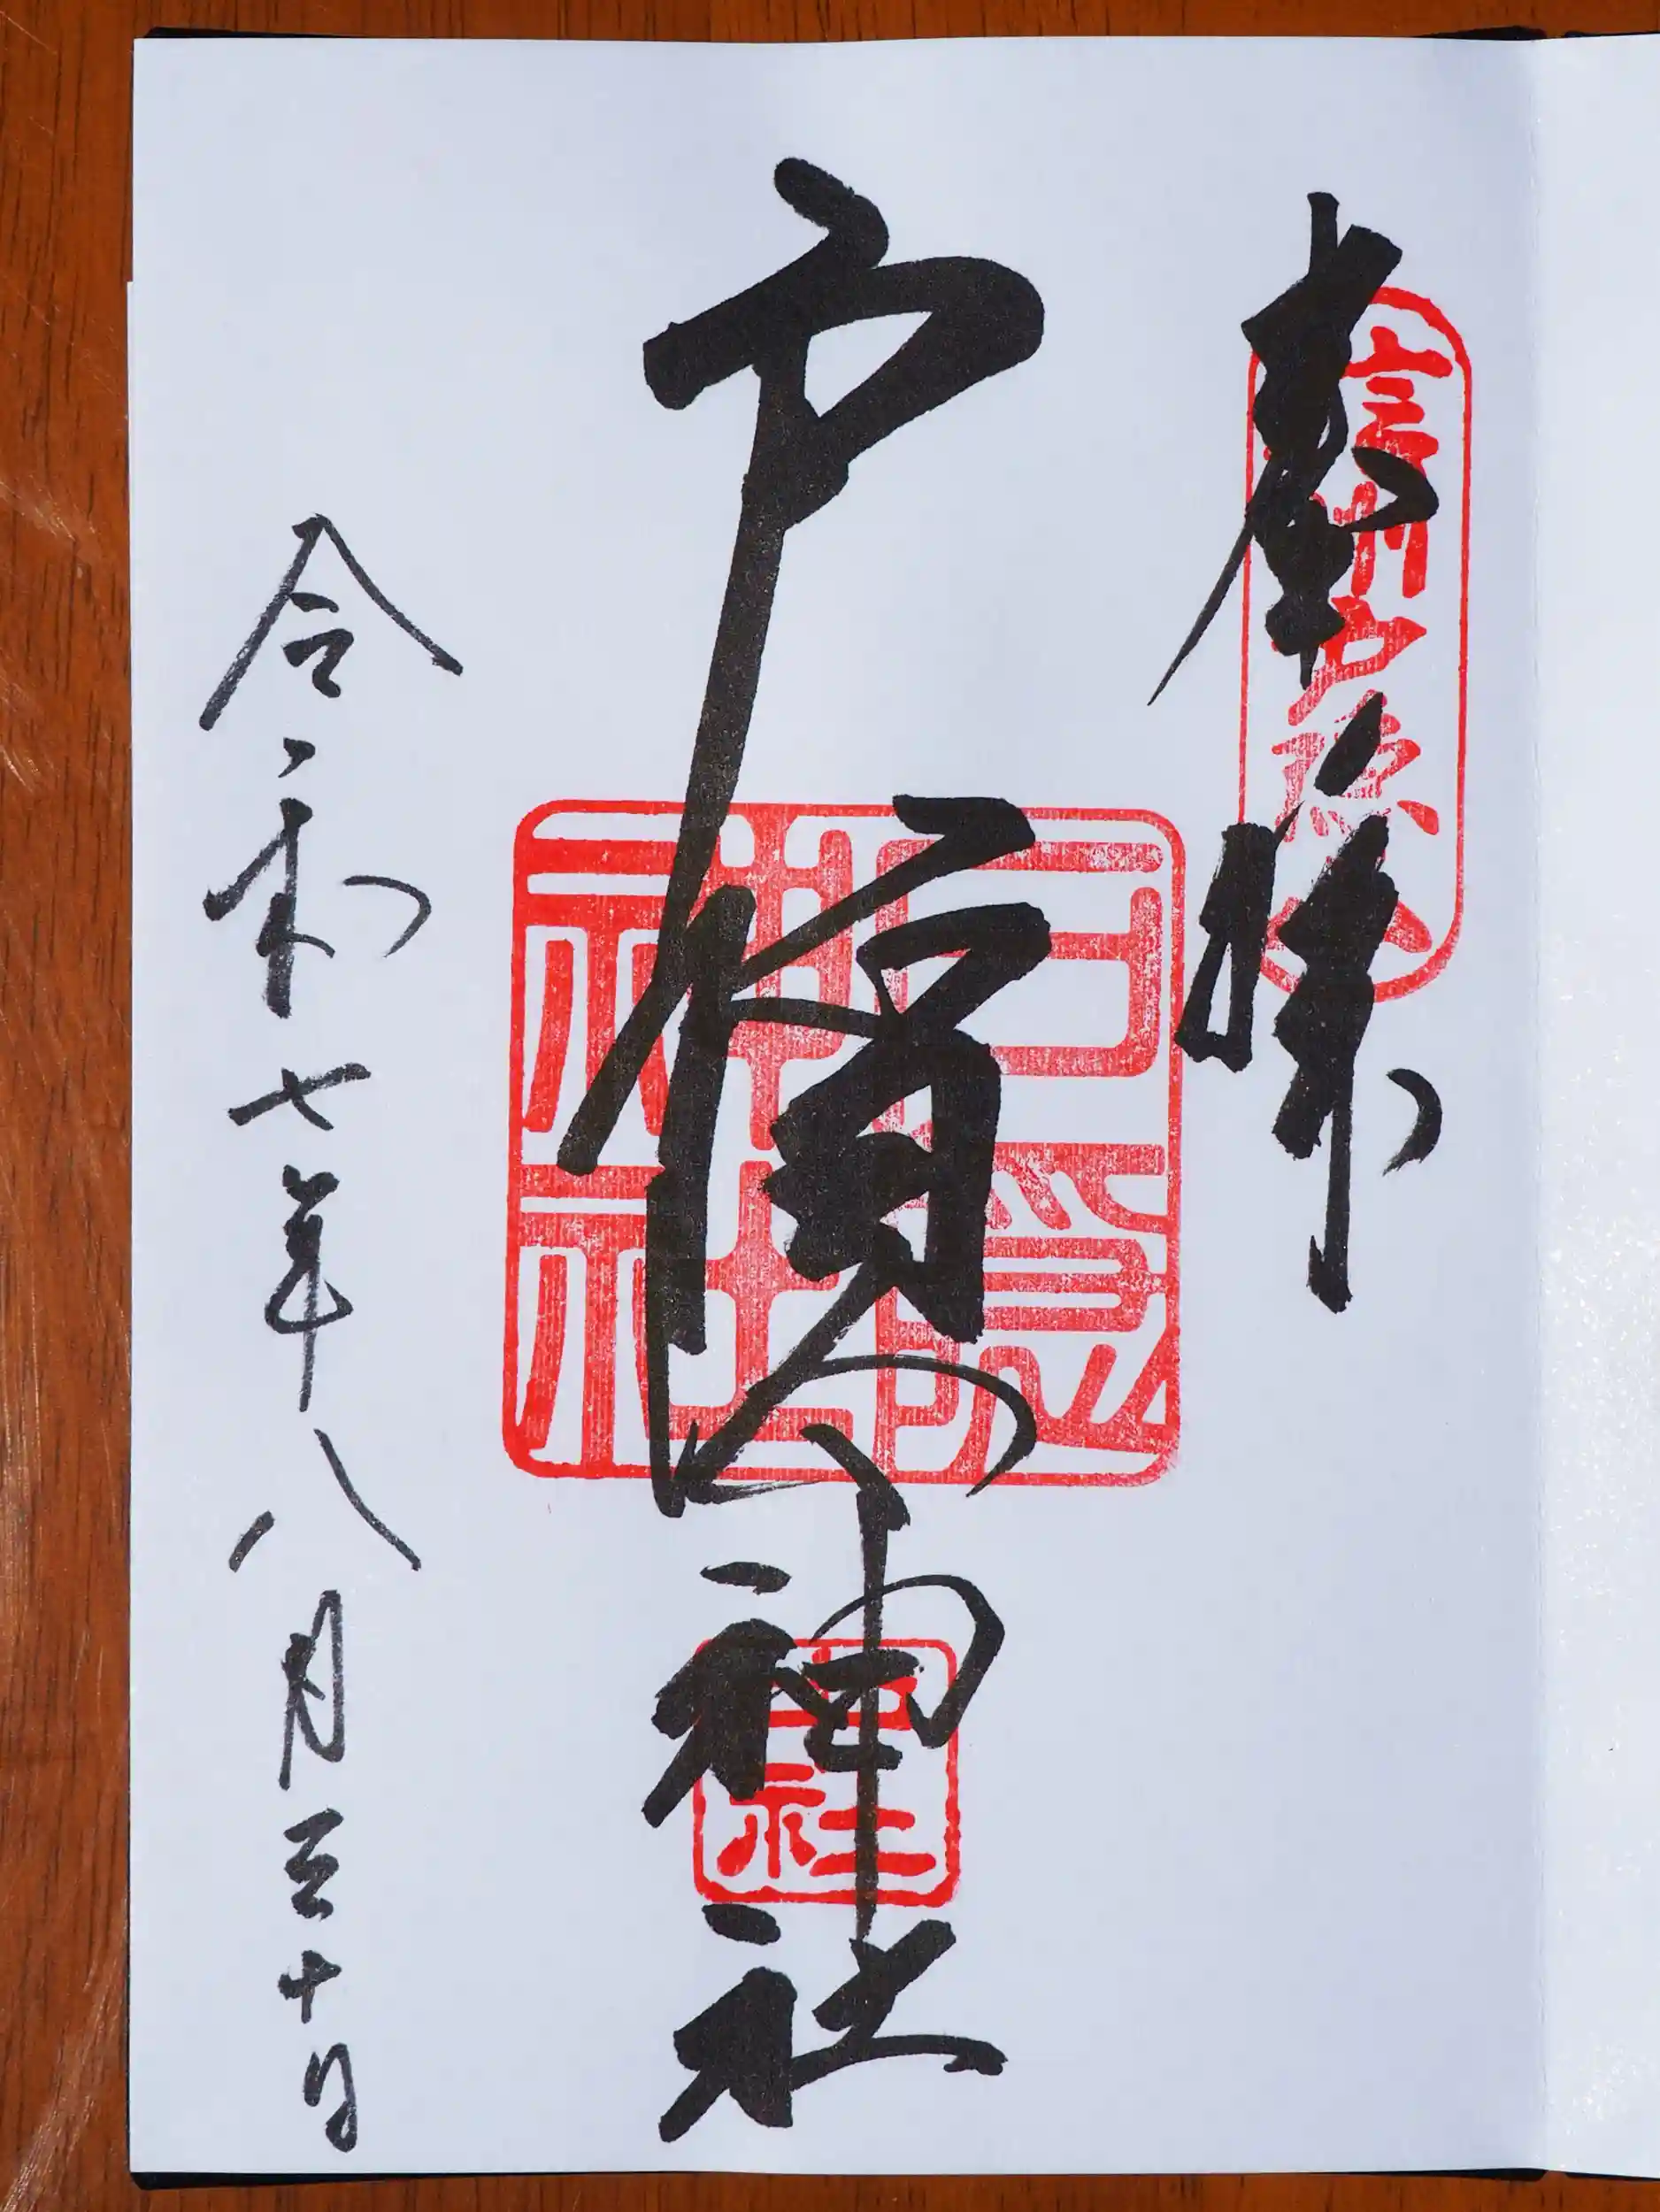 奉拝
信州戸隠山
戸隠神社
戸隠神社
中社
令和七年八月三十日